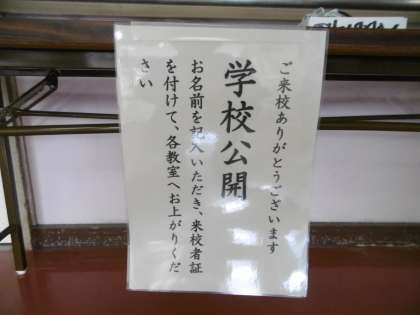 ご来校ありがとうございます
学校公開
お名前を記入いただき、来校者証
を付けて、各教室へお上がりくだ
さい